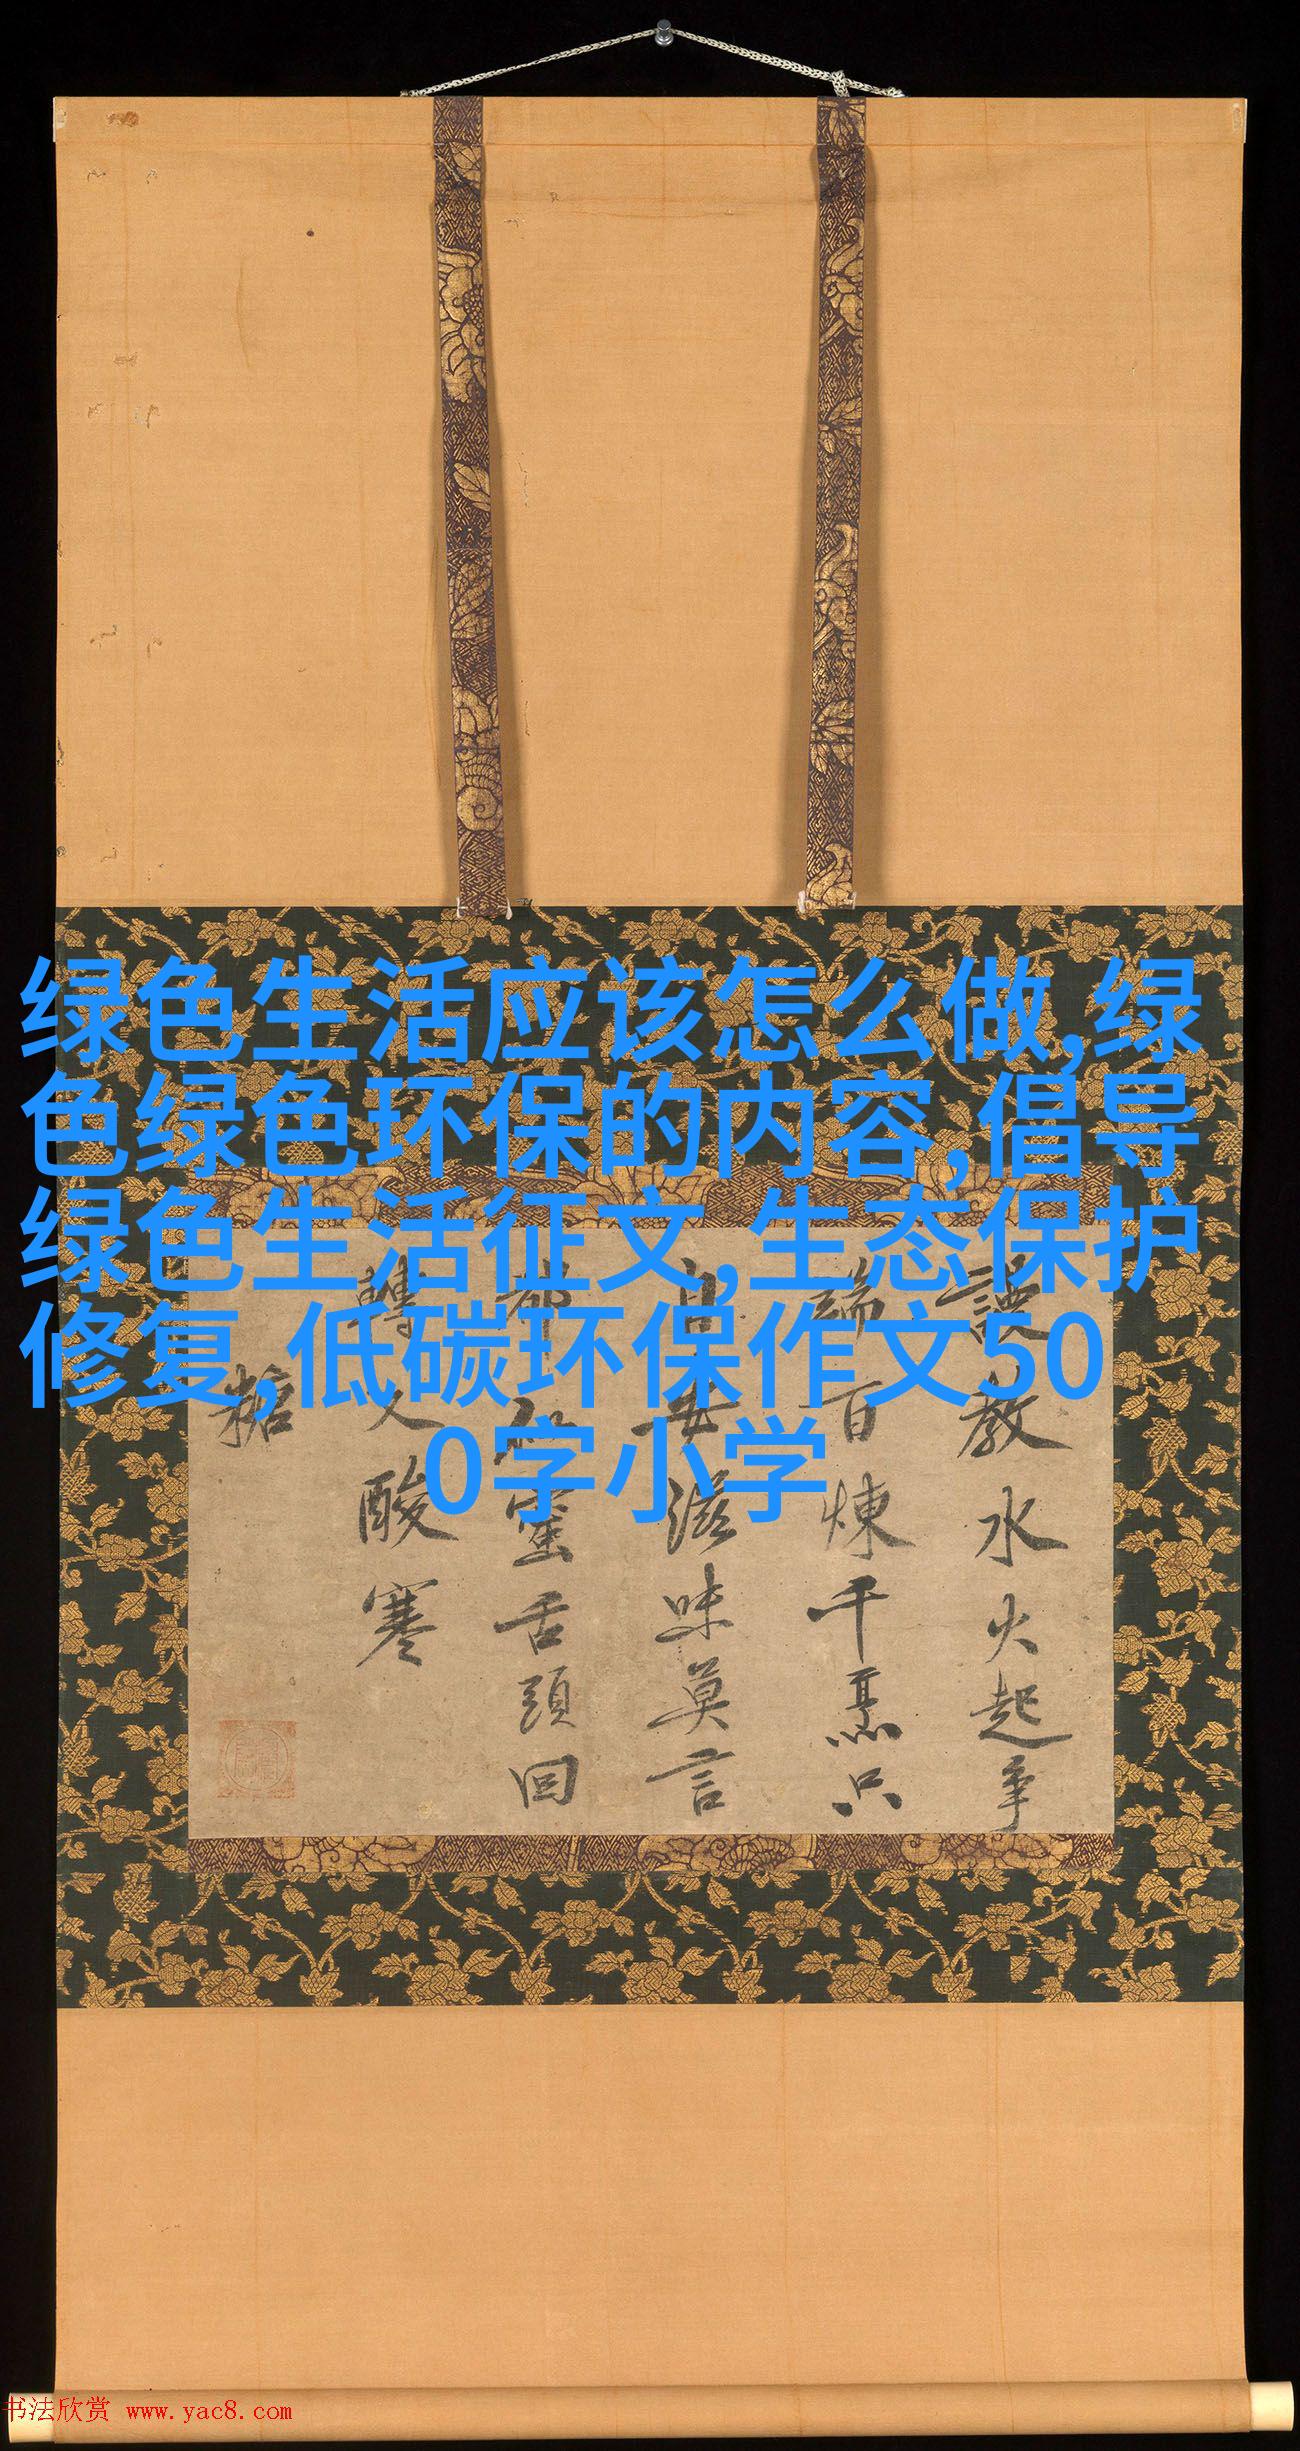 绿色生活应该怎么做,绿
色绿色环保的内容,倡导
绿色生活征文,生态保护
修复,低碳环保作文50
0字小学
教水火起争
百煉千烹只
滋味莫言
蜜舌頭回
轉又酸寒
糖
书法欣赏 www.yac8.com